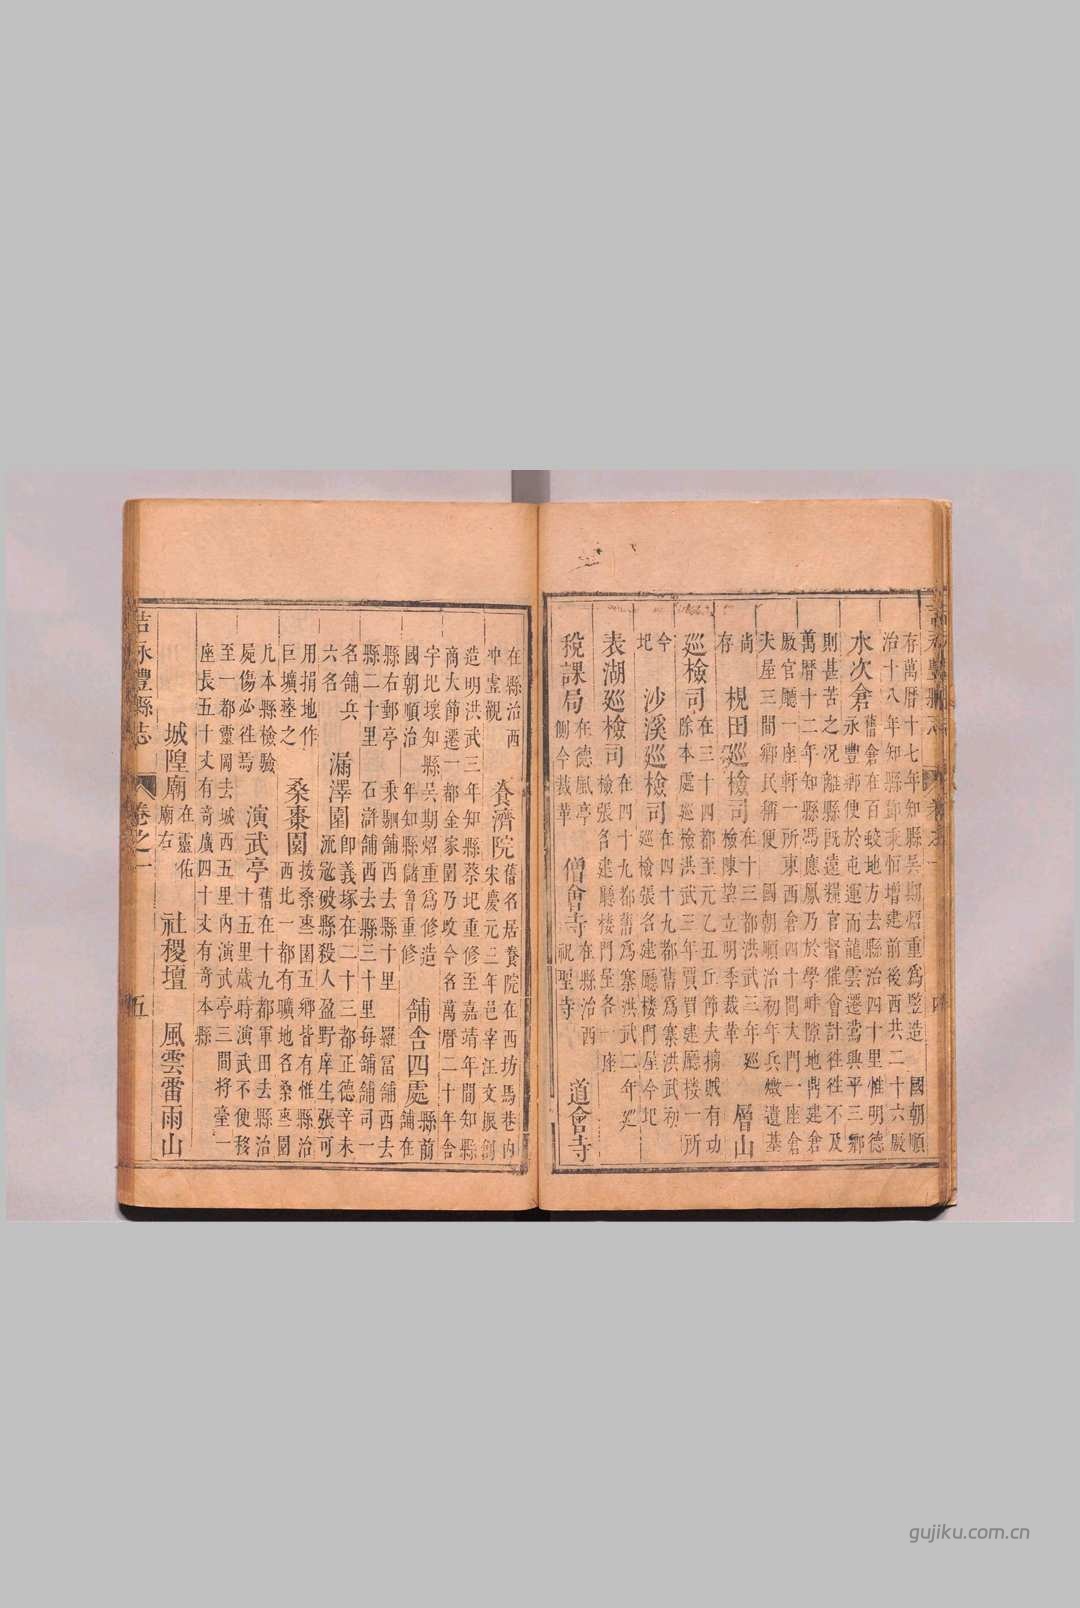 存萬曆十七年知縣吳期炤重為竪造　國朝順
治十八年知縣鄭秉恒增建前後西共二十六廒
水次倉
舊倉在百蛟地方去縣治四十里惟明德
永豐鄉便於屯運而龍雲遷鶯興平三鄉
則甚苦之況離縣既遠糧官督催會計徃徃不及
萬曆十二年知縣馮應鳳乃於學畔隙地剙建倉
廒官廳一座軒一所東西倉四十間大門一座倉
夫屋三間鄉民稱便　國朝順治初年兵燬遺基
尚
存
梘田巡檢司
在十三都洪武三年巡
檢陳㝎立明季裁革
層山
巡檢司
在三十四都至元乙丑丘節夫擒賊有功
除本處巡檢洪武三年賈買建廳楼一所
今
圯
沙溪巡檢司
在四十九都舊為寨洪武初
巡檢張名建廳楼門屋今圯
表湖巡檢司
在四十九都舊為寨洪武二年廵
檢張名建廳楼門屋各一座
稅課局
在德風亭
側今裁革
僧會寺
在縣治西
祝聖寺
道會寺
在縣治西
冲虛觀
養濟院
舊名居養院在西坊馬巷內
宋慶元二年邑宰汪文振剏
造明洪武三年知縣蔡圯重修至嘉靖年間知縣
商大節遷一都金家園乃改今名萬曆二十年舍
宇圯壞知縣吳期炤重為修造
國朝順治　年知縣儲魯重修
舖舍四處
縣前
舖在
縣右郵亭　乘駟舖西去縣十里　羅富舖西去
縣二十里　石滸舖西去縣三十里每舖舖司一
名舖兵
六名
漏澤園
即義塚在二十三都正德辛未
流寇破縣殺人盈野庠生張可
用捐地作
巨壙瘞之
桑棗園
按桑棗園五鄉皆有惟縣治
西北一都有曠地名桑棗園
凣本縣檢驗
屍傷必徃焉
演武亭
舊在十九都軍田去縣治
十五里歲時演武不便移
至一都靈岡去城西五里內演武亭三間将臺一
座長五十丈有奇廣四十丈有奇本縣
城隍廟
在靈佑
廟右
社稷壇
風雲雷雨山
吉永豐縣志
卷之一
五